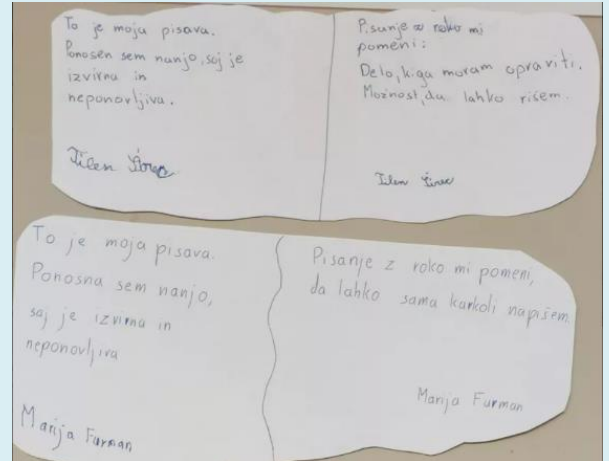 To je moja pisava.
Ponosen sem nanjo, saj je
izvirna in
neponovljiva.
Tilen
Pisanje z roko mi
pomeni:
Delo, ki ga moram opraviti.
Možnost, da lahko rišem.
Tilen
To je moja pisava.
Ponosna sem nanjo,
saj je izvirna in
neponovljiva
Marija Furman
Pisanje z roko mi pomeni,
da lahko sama karkoli napišem.
Marija Furman